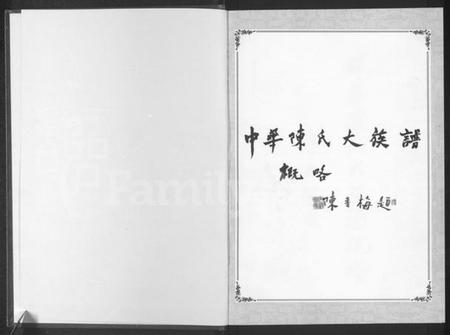 中华陳氏大族譜
概略
陳香梅題
Family